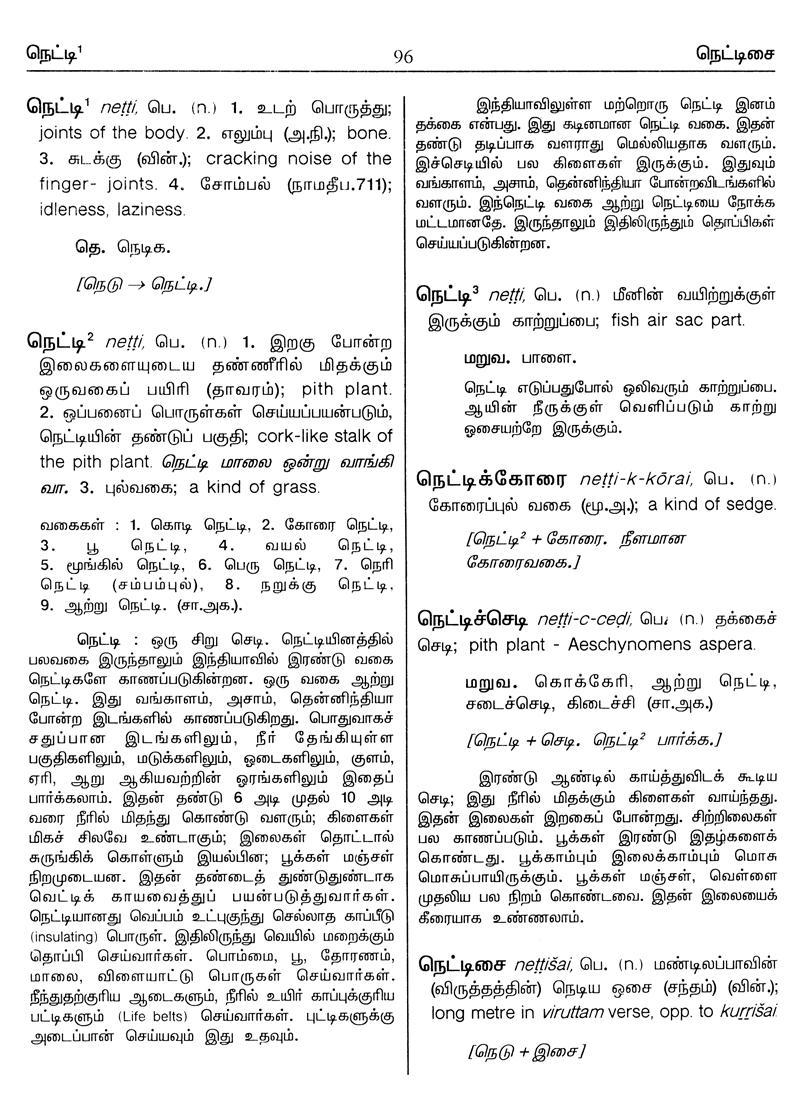 நெட்டி¹
96
நெட்டிசை
நெட்டி¹ neṭṭi, பெ. (n.) 1. உடற் பொருத்து;
joints of the body. 2. எலும்பு (அ.நி.); bone.
3. சுடக்கு (வின்.); cracking noise of the
finger- joints. 4. சோம்பல் (நாமதீப.711);
idleness, laziness.
தெ. நெடிக.
[நெடு → நெட்டி.]
நெட்டி² neṭṭi, பெ. (n.) 1. இறகு போன்ற
இலைகளையுடைய தண்ணீரில் மிதக்கும்
ஒருவகைப் பயிரி (தாவரம்); pith plant.
2. ஒப்பனைப் பொருள்கள் செய்யப்பயன்படும்,
நெட்டியின் தண்டுப் பகுதி; cork-like stalk of
the pith plant. நெட்டி மாலை ஒன்று வாங்கி
வா. 3. புல்வகை; a kind of grass.
வகைகள் : 1. கொடி நெட்டி, 2. கோரை நெட்டி,
3. பூ நெட்டி, 4. வயல் நெட்டி,
5. மூங்கில் நெட்டி, 6. பெரு நெட்டி, 7. நெரி
நெட்டி (சம்பம்புல்), 8. நறுக்கு நெட்டி,
9. ஆற்று நெட்டி. (சா.அக.).
நெட்டி : ஒரு சிறு செடி. நெட்டியினத்தில்
பலவகை இருந்தாலும் இந்தியாவில் இரண்டு வகை
நெட்டிகளே காணப்படுகின்றன. ஒரு வகை ஆற்று
நெட்டி. இது வங்காளம், அசாம், தென்னிந்தியா
போன்ற இடங்களில் காணப்படுகிறது. பொதுவாகச்
சதுப்பான இடங்களிலும், நீர் தேங்கியுள்ள
பகுதிகளிலும், மடுக்களிலும், ஓடைகளிலும், குளம்,
ஏரி, ஆறு ஆகியவற்றின் ஓரங்களிலும் இதைப்
பார்க்கலாம். இதன் தண்டு 6 அடி முதல் 10 அடி
வரை நீரில் மிதந்து கொண்டு வளரும்; கிளைகள்
மிகச் சிலவே உண்டாகும்; இலைகள் தொட்டால்
சுருங்கிக் கொள்ளும் இயல்பின; பூக்கள் மஞ்சள்
நிறமுடையன. இதன் தண்டைத் துண்டுதுண்டாக
வெட்டிக் காயவைத்துப் பயன்படுத்துவார்கள்.
நெட்டியானது வெப்பம் உட்புகுந்து செல்லாத காப்பீடு
(insulating) பொருள். இதிலிருந்து வெயில் மறைக்கும்
தொப்பி செய்வார்கள். பொம்மை, பூ, தோரணம்,
மாலை, விளையாட்டு பொருகள் செய்வார்கள்.
நீந்துதற்குரிய ஆடைகளும், நீரில் உயிர் காப்புக்குரிய
பட்டிகளும் (Life belts) செய்வார்கள். புட்டிகளுக்கு
அடைப்பான் செய்யவும் இது உதவும்.
இந்தியாவிலுள்ள மற்றொரு நெட்டி இனம்
தக்கை என்பது. இது கடினமான நெட்டி வகை. இதன்
தண்டு தடிப்பாக வளராது மெல்லியதாக வளரும்.
இச்செடியில் பல கிளைகள் இருக்கும். இதுவும்
வங்காளம், அசாம், தென்னிந்தியா போன்றவிடங்களில்
வளரும். இந்நெட்டி வகை ஆற்று நெட்டியை நோக்க
மட்டமானதே. இருந்தாலும் இதிலிருந்தும் தொப்பிகள்
செய்யப்படுகின்றன.
நெட்டி³ neṭṭi, பெ. (n.) மீனின் வயிற்றுக்குள்
இருக்கும் காற்றுப்பை; fish air sac part.
மறுவ. பாளை.
நெட்டி எடுப்பதுபோல் ஒலிவரும் காற்றுப்பை.
ஆயின் நீருக்குள் வெளிப்படும் காற்று
ஓசையற்றே இருக்கும்.
நெட்டிக்கோரை neṭṭi-k-kōrai, பெ. (n.)
கோரைப்புல் வகை (மூ.அ.); a kind of sedge.
[நெட்டி² + கோரை. நீளமான
கோரைவகை.]
நெட்டிச்செடி neṭṭi-c-ceḍi, பெ. (n.) தக்கைச்
செடி; pith plant - Aeschynomens aspera.
மறுவ. கொக்கேரி, ஆற்று நெட்டி,
சடைச்செடி, கிடைச்சி (சா.அக.)
[நெட்டி + செடி. நெட்டி² பார்க்க.]
இரண்டு ஆண்டில் காய்த்துவிடக் கூடிய
செடி; இது நீரில் மிதக்கும் கிளைகள் வாய்ந்தது.
இதன் இலைகள் இறகைப் போன்றது. சிற்றிலைகள்
பல காணப்படும். பூக்கள் இரண்டு இதழ்களைக்
கொண்டது. பூக்காம்பும் இலைக்காம்பும் மொசு
மொசுப்பாயிருக்கும். பூக்கள் மஞ்சள், வெள்ளை
முதலிய பல நிறம் கொண்டவை. இதன் இலையைக்
கீரையாக உண்ணலாம்.
நெட்டிசை neṭṭišai, பெ. (n.) மண்டிலப்பாவின்
(விருத்தத்தின்) நெடிய ஓசை (சந்தம்) (வின்.);
long metre in viruttam verse, opp. to kuṟṟišai.
[நெடு + இசை]